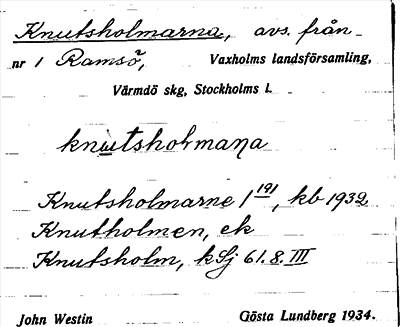 Knutsholmarna, avs. från
nr 1 Ramsö, Vaxholms landsförsamling,
Värmdö skg, Stockholms l.
knutsholmaṇa
Knutsholmarne 1 191, kb 1932
Knutholmen, ek
Knutsholm, kSj 61.8.III
John Westin Gösta Lundberg 1934.